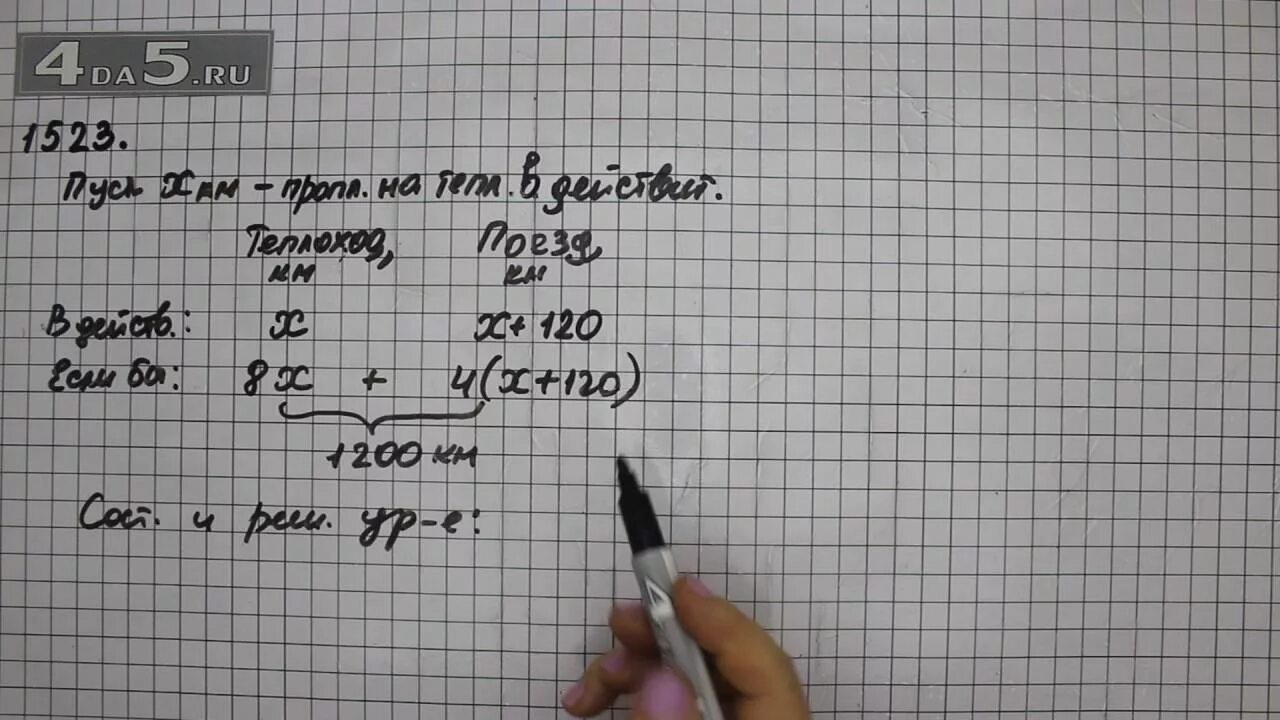 4DA5.RU
1523.
Пусть x км – пропл. на тепл. в действит.
Теплоход, км Поезд, км
В действ.: x x+120
Если бы: 8x + 4(x+120)
1200 км
Сост. и реш. ур-е: